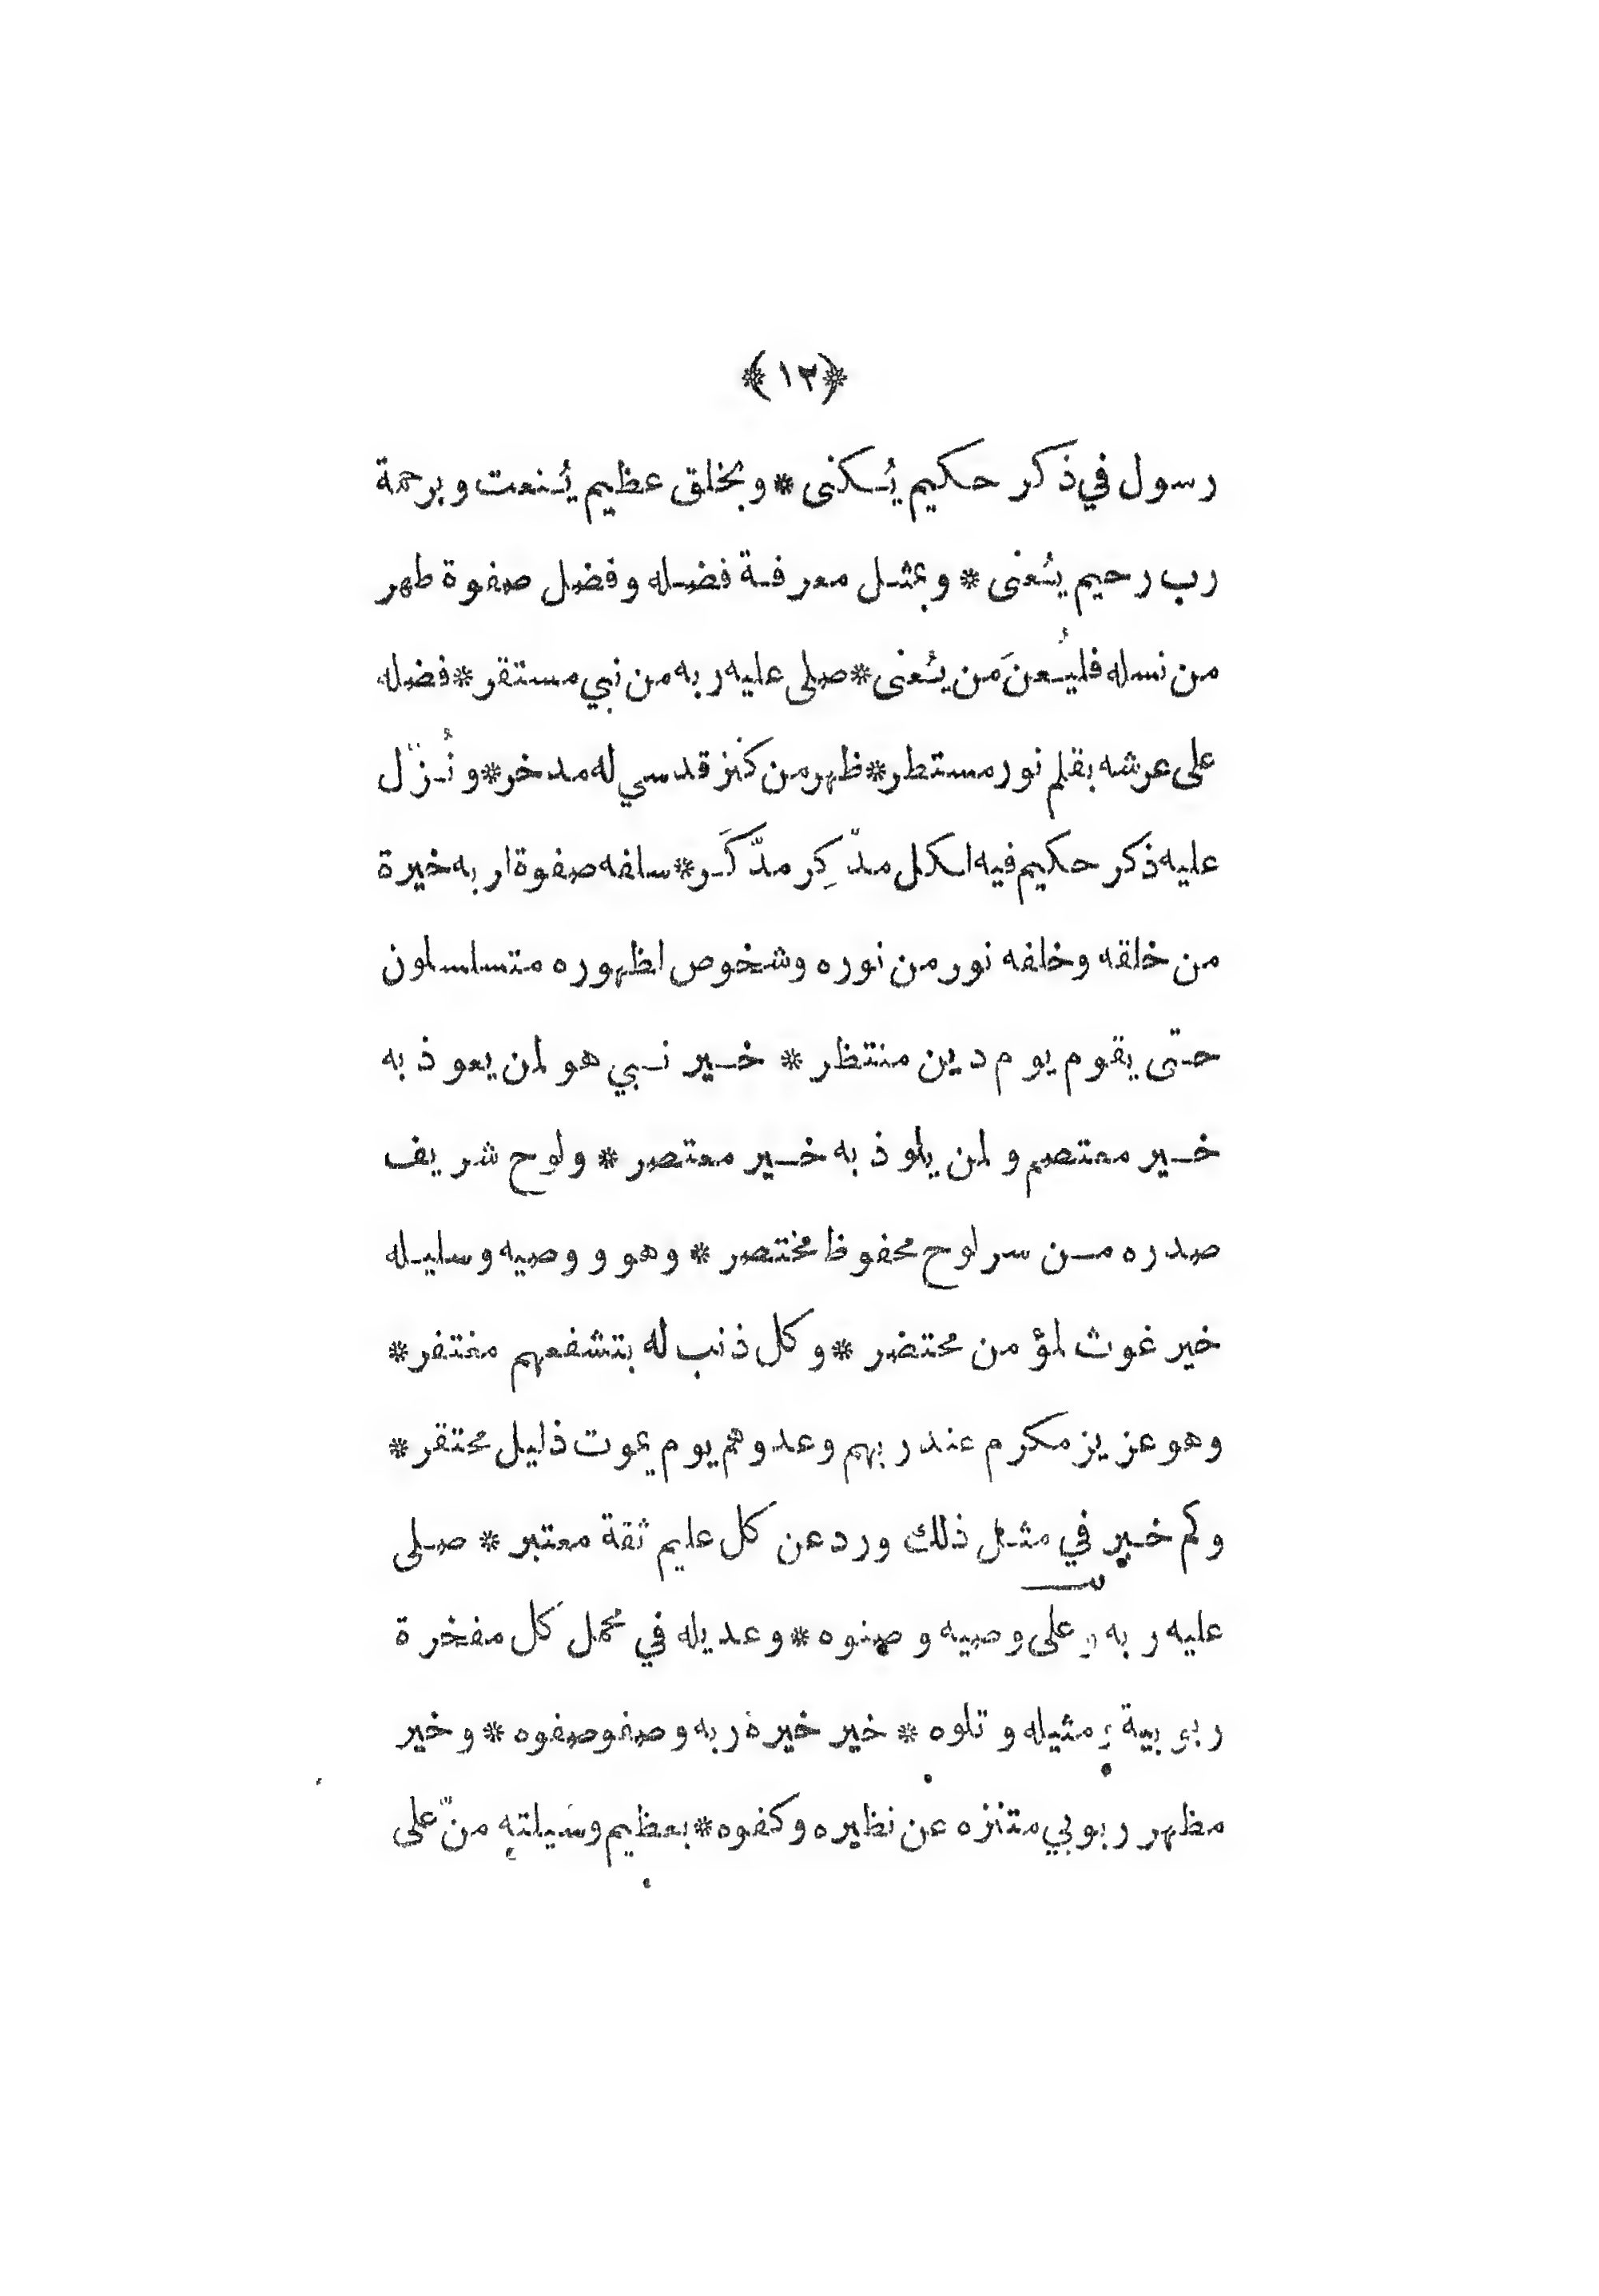 ﴿١٢﴾
رسول في ذكر حكيم يُكنى * وبخلق عظيم يُنعت وبرحمة
رب رحيم يُعنى * وبمثل معرفة فضله وفضل صفوة طهر
من نسله فليُعنَ من يُعنى * صلى عليه ربه من نبي مستقر * فضله
على عرشه بقلم نور مستطر * ظهر من كنز قدسي له مدخر * ونُزّل
عليه ذكر حكيم فيه لكل مدّكِر مدَّكَر * سلفه صفوة لربه خيرة
من خلقه وخلفه نور من نوره وشخوص لظهوره متسلسلون
حتى يقوم يوم دين منتظر * خير نبي هو لمن يعوذ به
خير معتصم ولمن يلوذ به خير معتصر * ولوح شريف
صدره من سر لوح محفوظ مختصر * وهو ووصيه وسليله
خير غوث لمؤمن محتضر * وكل ذنب له بتشفعهم مغتفر *
وهو عزيز مكرم عند ربهم وعدوهم يوم يموت ذليل محتقر *
وكم خبر في مثل ذلك ورد عن كل عليم ثقة معتبر * صلى
عليه ربه وعلى وصيه وصنوه * وعديله في محمل كل مفخرة
ربوبية ومثيله وتلوه * خير خيرة ربه وصفو صفوه * وخير
مظهر ربوبي متنزه عن نظيره وكفوه * بعظيم وسيلته منّ على